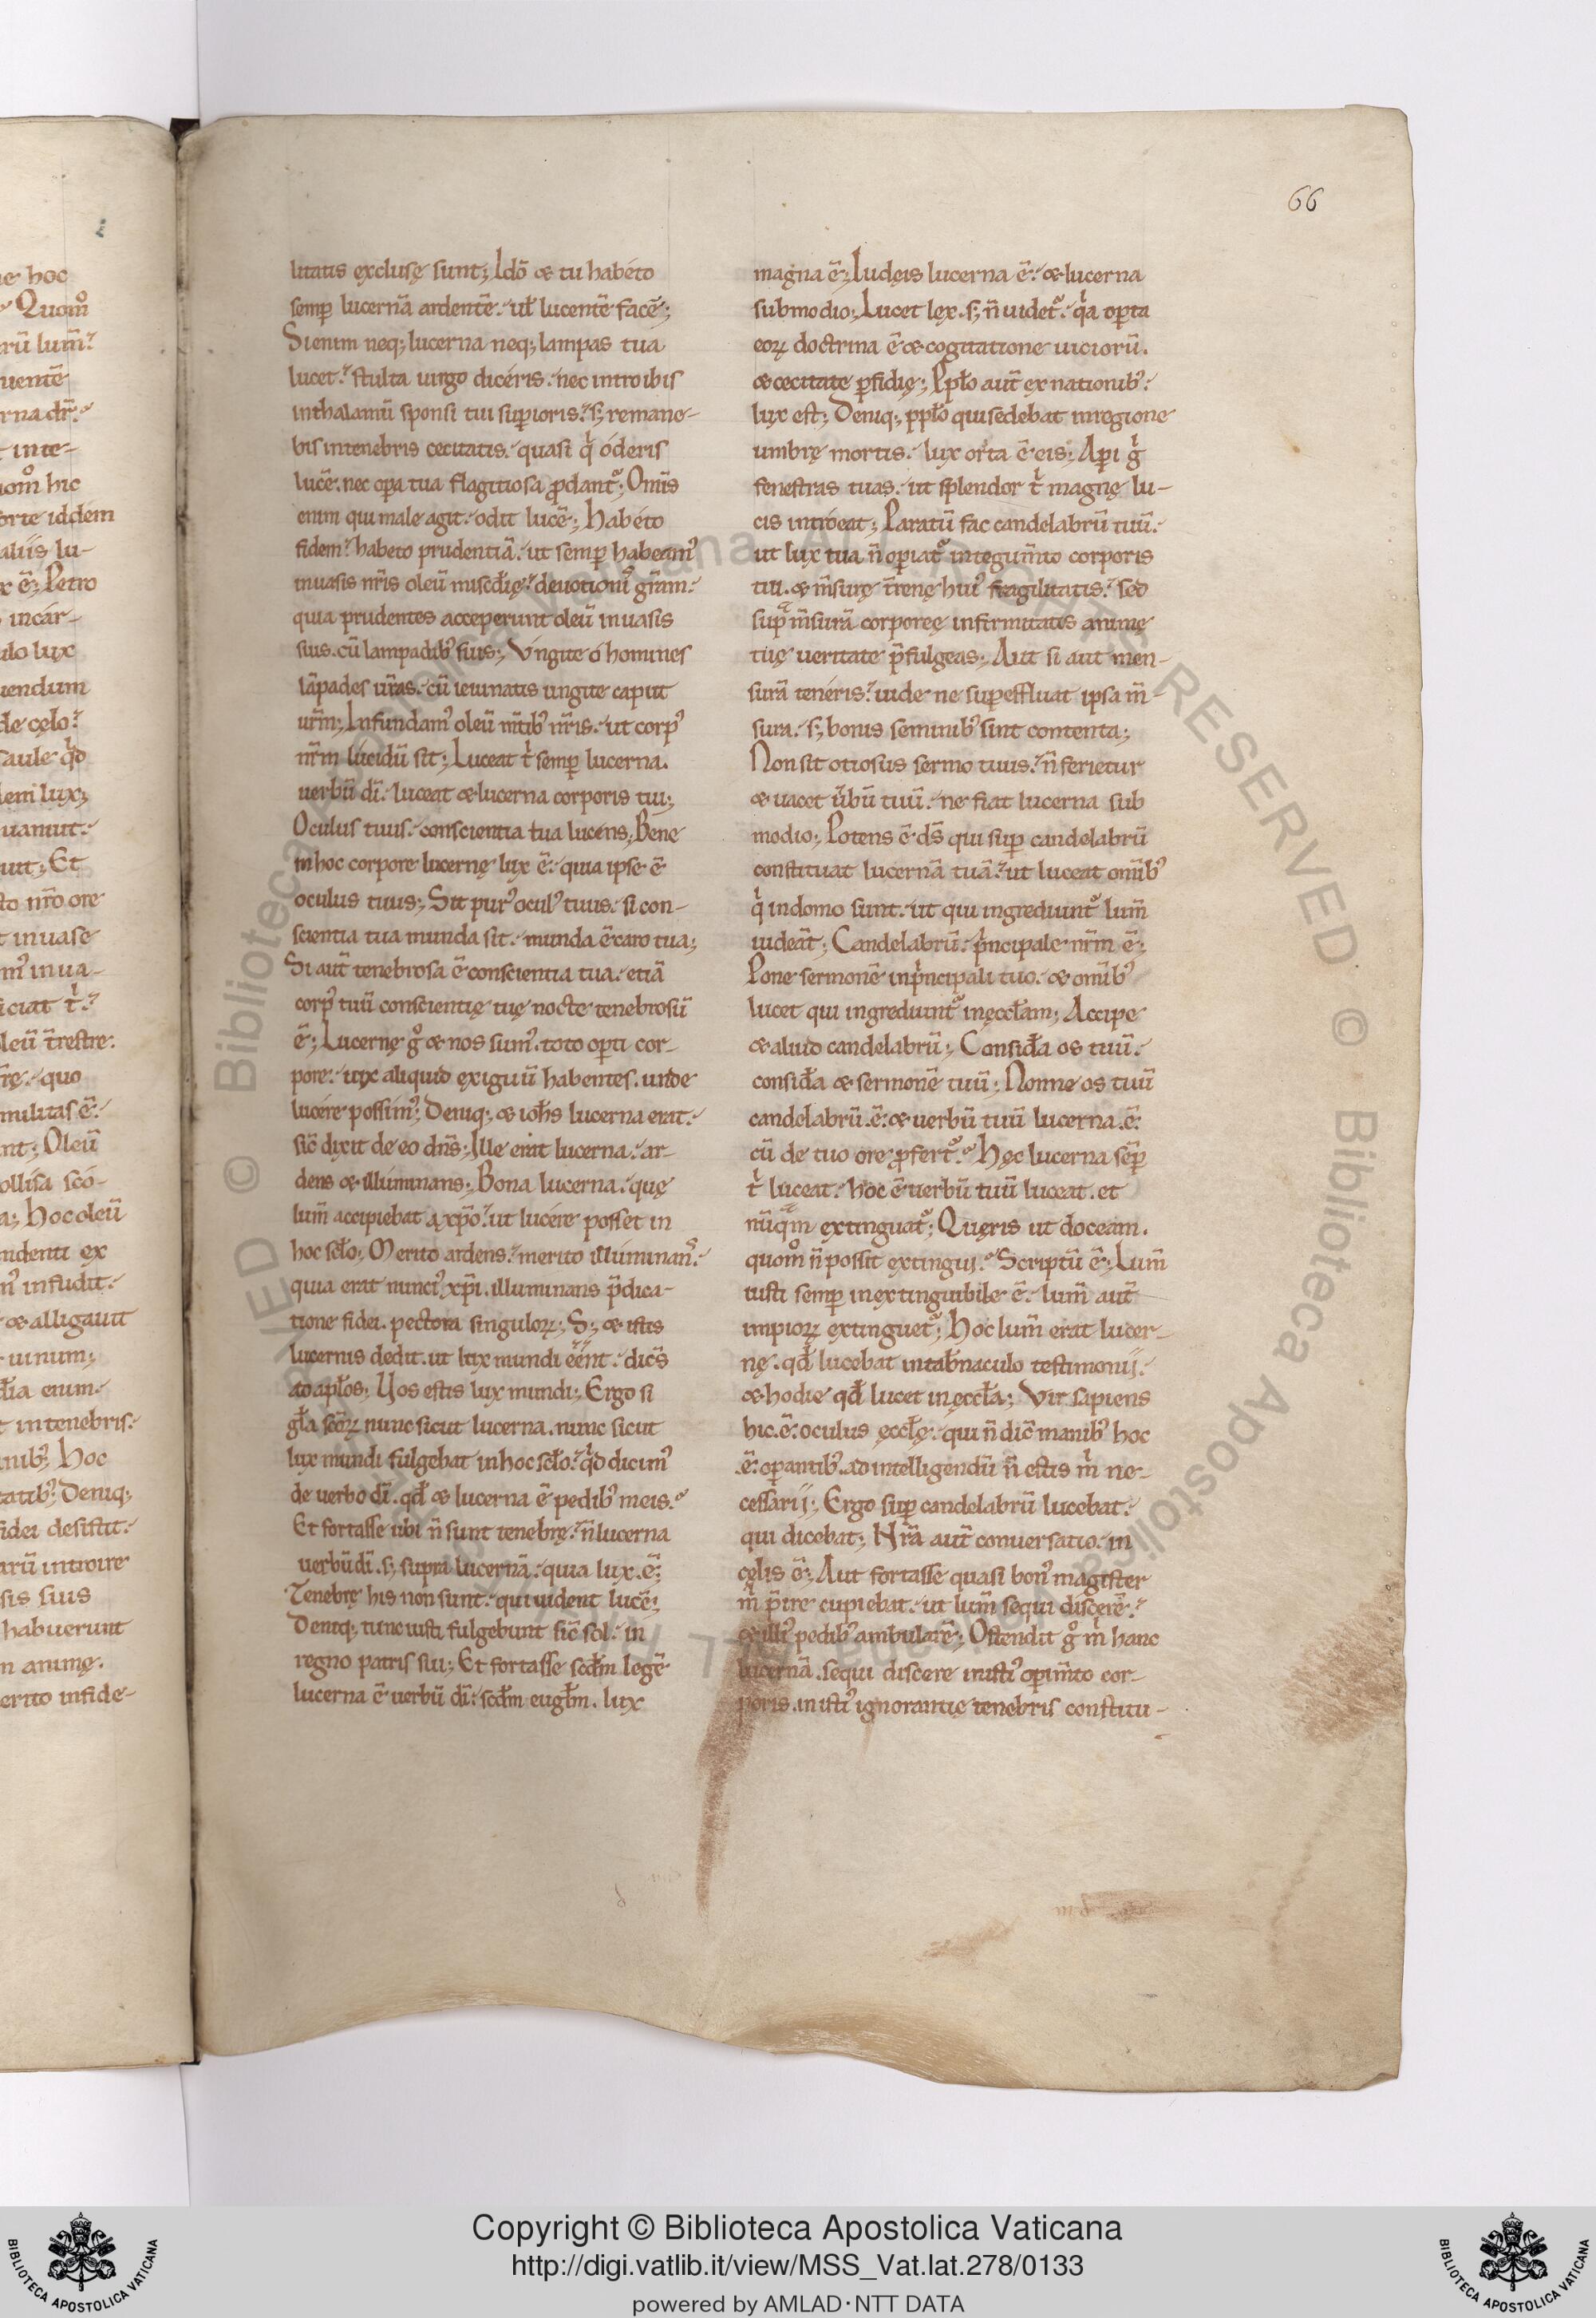 66
litatis exclusę sunt; Idō & tu habéto
semp̄ lucernā ardentē. ut̄ lucentē facē;
Si enim neq; lucerna neq; lampas tua
lucet. stulta uirgo dicéris. nec introibis
inthalamū sponsi tui sup̄ioris. s; remane-
bis intenebris cecitatis. quasi q̇ óderis
lucē. nec op̄a tua flagitiosa p̄dant᷑; Om̄is
enim qui male agit. odit lucē; Habéto
fidem. habeto prudentiā. ut semp̄ habeam᷒
inuasis nr̄is oleū misc̄dię. deuotioni᷒ gr̄am.
quia prudentes acceperunt oleū inuasis
suis. cū lampadib᷒ suis; Vngite ó homines
lāpades ur̄as. cū ieiunatis ungite caput
ur̄m; Infundam᷒ oleū m̄tib᷒ nr̄is. ut corp᷒
nr̄m lucidū sit; Luceat ṫ semp̄ lucerna.
uerbū dī. luceat & lucerna corporis tui;
Oculus tuus. conscientia tua lucens; Bene
inhoc corpore lucernę lux ē. quia ipse ē
oculus tuus; Sit pur᷒ ocul᷒ tuus. si con-
scientia tua munda sit. munda ē caro tua;
Si aut̄ tenebrosa ē conscientia tua. etiā
corp᷒ tuū conscientię tuę nocte tenebrosū
ē; Lucernę g̊ & nos sum᷒. toto op̄ti cor-
pore. uix aliquid exiguū habentes. unde
lucére possim᷒; Deniq; & ioh̄s lucerna erat.
sic̄ dixit de eo dn̄s; Ille erat lucerna. ar-
dens & illuminans; Bona lucerna. quę
lum̄ accipiebat a xp̄o. ut lucére posset in
hoc sc̄lo; Merito ardens. merito illuminans.
quia erat nunci᷒ xp̄i. illuminans p̄dica-
tione fidei. pectora singuloꝝ; S; & istis
lucernis dedit. ut lux mundi eēnt. dicēs
ad apl̄os; Uos estis lux mundi; Ergo si
gl̄a sc̄oꝝ nunc sicut lucerna. nunc sicut
lux mundi fulgebat inhoc sc̄lo. q̇d dicim᷒
de uerbo dī. qd̄ & lucerna ē pedib᷒ meis.
Et fortasse ubi n̄ sunt tenebrę. n̄ lucerna
uerbū dī. s; supra lucernā. quia lux .ē;
Tenebrę his non sunt. qui uident lucē;
Deniq; tunc iusti fulgebunt sic̄ sol. in
regno patris sui; Et fortasse sc̄dm legē
lucerna ē uerbū dī. sc̄dm eugl̄m. lux
magna ē; Iudęis lucerna ē. & lucerna
submodio; Lucet lex. s; n̄ uidet᷑. q̇a op̄ta
eoꝝ doctrina ē & cogitatione uiciorū.
& cecitate p̄fidię; Pp̄lo aut̄ ex nationib᷒.
lux est; Deniq; pp̄lo qui sedebat inregione
umbrę mortis. lux orta ē eis; Ap̄i g̊
fenestras tuas. ut splendor ṫ magnę lu-
cis introeat; Paratū fac candelabrū tuū.
ut lux tua n̄ op̄iat᷑ integum̄to corporis
tui. & m̄surę t̄renę hui᷒ fragilitatis. sed
supra m̄surā corporeę infirmitatis animę
tuę ueritate p̄fulgeas; Aut si aut men-
surā tenéris. uide ne sup̄effluat ipsa m̄-
sura. s; bonis seminib᷒ sint contenta;
Non sit otiosus sermo tuus. n̄ ferietur
& uacet ūbū tuū. ne fiat lucerna sub
modio; Potens ē ds̄ qui sup̄ candelabrū
constituat lucernā tuā. ut luceat om̄ib᷒
q̇ indomo sunt. ut qui ingrediunt᷑ lum̄
uideāt; Candelabrū. ṗncipale nr̄m ē;
Pone sermonē inṗncipali tuo. & om̄ib᷒
lucet qui ingrediunt᷑ inęccl̄am; Accipe
& aliud candelabrū; Consid̄a os tuū.
consid̄a & sermonē tuū; Nonne os tuū
candelabrū .ē. & uerbū tuū lucerna .ē.
cū de tuo ore p̄fert᷑. Hęc lucerna sēp̄
ṫ luceat. hoc ē uerbū tuū luceat. et
nūqm̄ extinguat᷑; Quęris ut doceam.
quom̊ n̄ possit extingui. Scriptū ē; Lum̄
iusti semp̄ inextinguibile ē. lum̄ aut̄
impioꝝ extinguet᷑; Hoc lum̄ erat lucer-
nę. qd̄ lucebat intab̄naculo testimonij.
& hodie qd̄ lucet inęccl̄a; Vir sapiens
hic .ē. oculus ęccl̄ę. qui n̄ dic̄ manib᷒ hoc
.ē. op̄antib᷒. ad intelligendū n̄ estis ṁ ne-
cessarij; Ergo sup̄ candelabrū lucebat.
qui dicebat; Nr̄a aut̄ conuersatio. in
cęlis ē; Aut fortasse quasi bon᷒ magister
ṁ p̄ire cupiebat. ut lum̄ sequi discerē.
& illi᷒ pedib᷒ ambularē; Ostendit g̊ ṁ hanc
lucernā. sequi discere iniusti᷒ op̄im̄to cor-
poris. in isti᷒ ignorantię tenebris constitu-
Copyright © Biblioteca Apostolica Vaticana
http://digi.vatlib.it/view/MSS_Vat.lat.278/0133
powered by AMLAD·NTT DATA
BIBLIOTECA APOSTOLICA VATICANA
BIBLIOTECA APOSTOLICA VATICANA